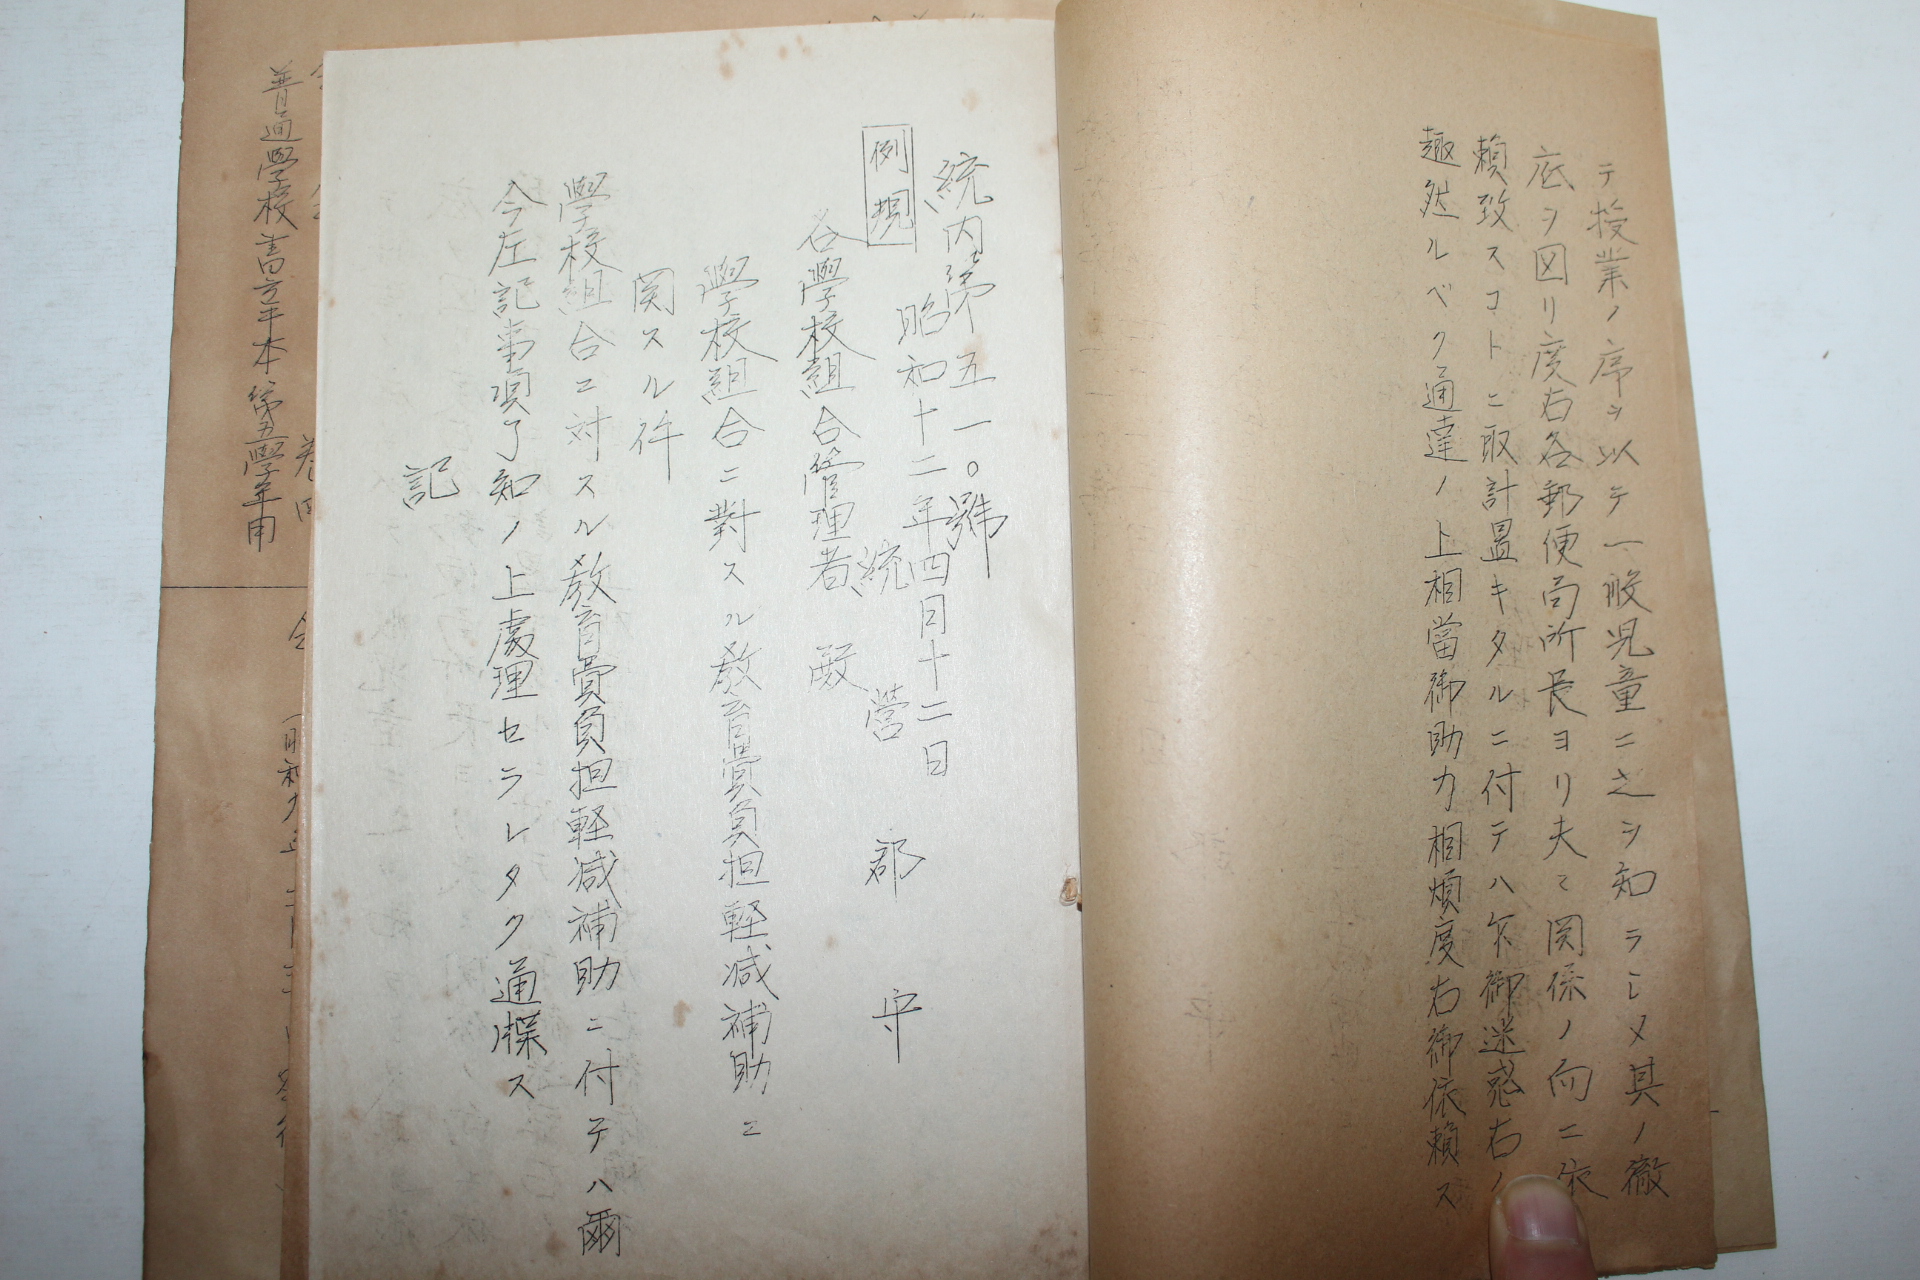 テ授業ノ序ヲ以テ一般児童ニ之ヲ知ラシメ其ノ徹
底ヲ図リ度右各郵便局所長ヨリ夫々関係ノ向ニ依
頼致スコトニ取計置キタルニ付テハ乍御迷惑右ノ
趣然ルベク通達ノ上相當御助力相煩度右御依頼ス
統内第五一〇號
昭和十二年四月十二日
例規
統營郡守
各學校組合管理者殿
學校組合ニ對スル教育費負担軽減補助ニ
関スル件
學校組合ニ対スル教育費負担軽減補助ニ付テハ爾
今左記事項了知ノ上處理セラレタク通牒ス
記
普通學校書方手本第五學年用
巻四